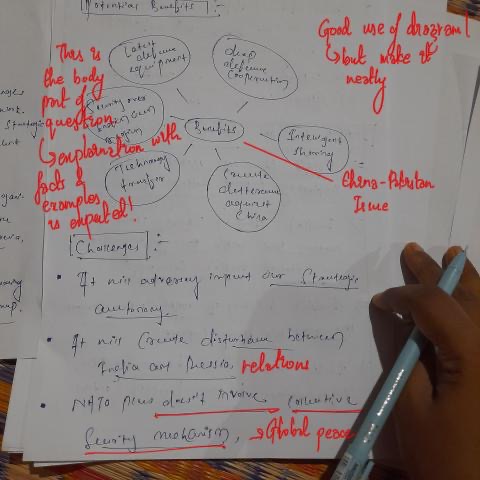 Potential Benefits :-
Good use of diagram!
↳ but make it
neatly
This is
the body
part of
question
↳ explanation with
facts &
examples
is expected!
Latest
defence
equipment
deep
defence
Cooperation
Security over
Indian Ocean
region
Benefits
Intelligent
Sharing
Technology
transfer
Create
deterrence
against
China
China-Pakistan
Issue
Challenges :-
• It will adversary impact our Strategic
autonomy.
• It will Create disturbance between
India and Russia relations
• NATO plus doesn't involve collective
Security mechanism, → Global peace